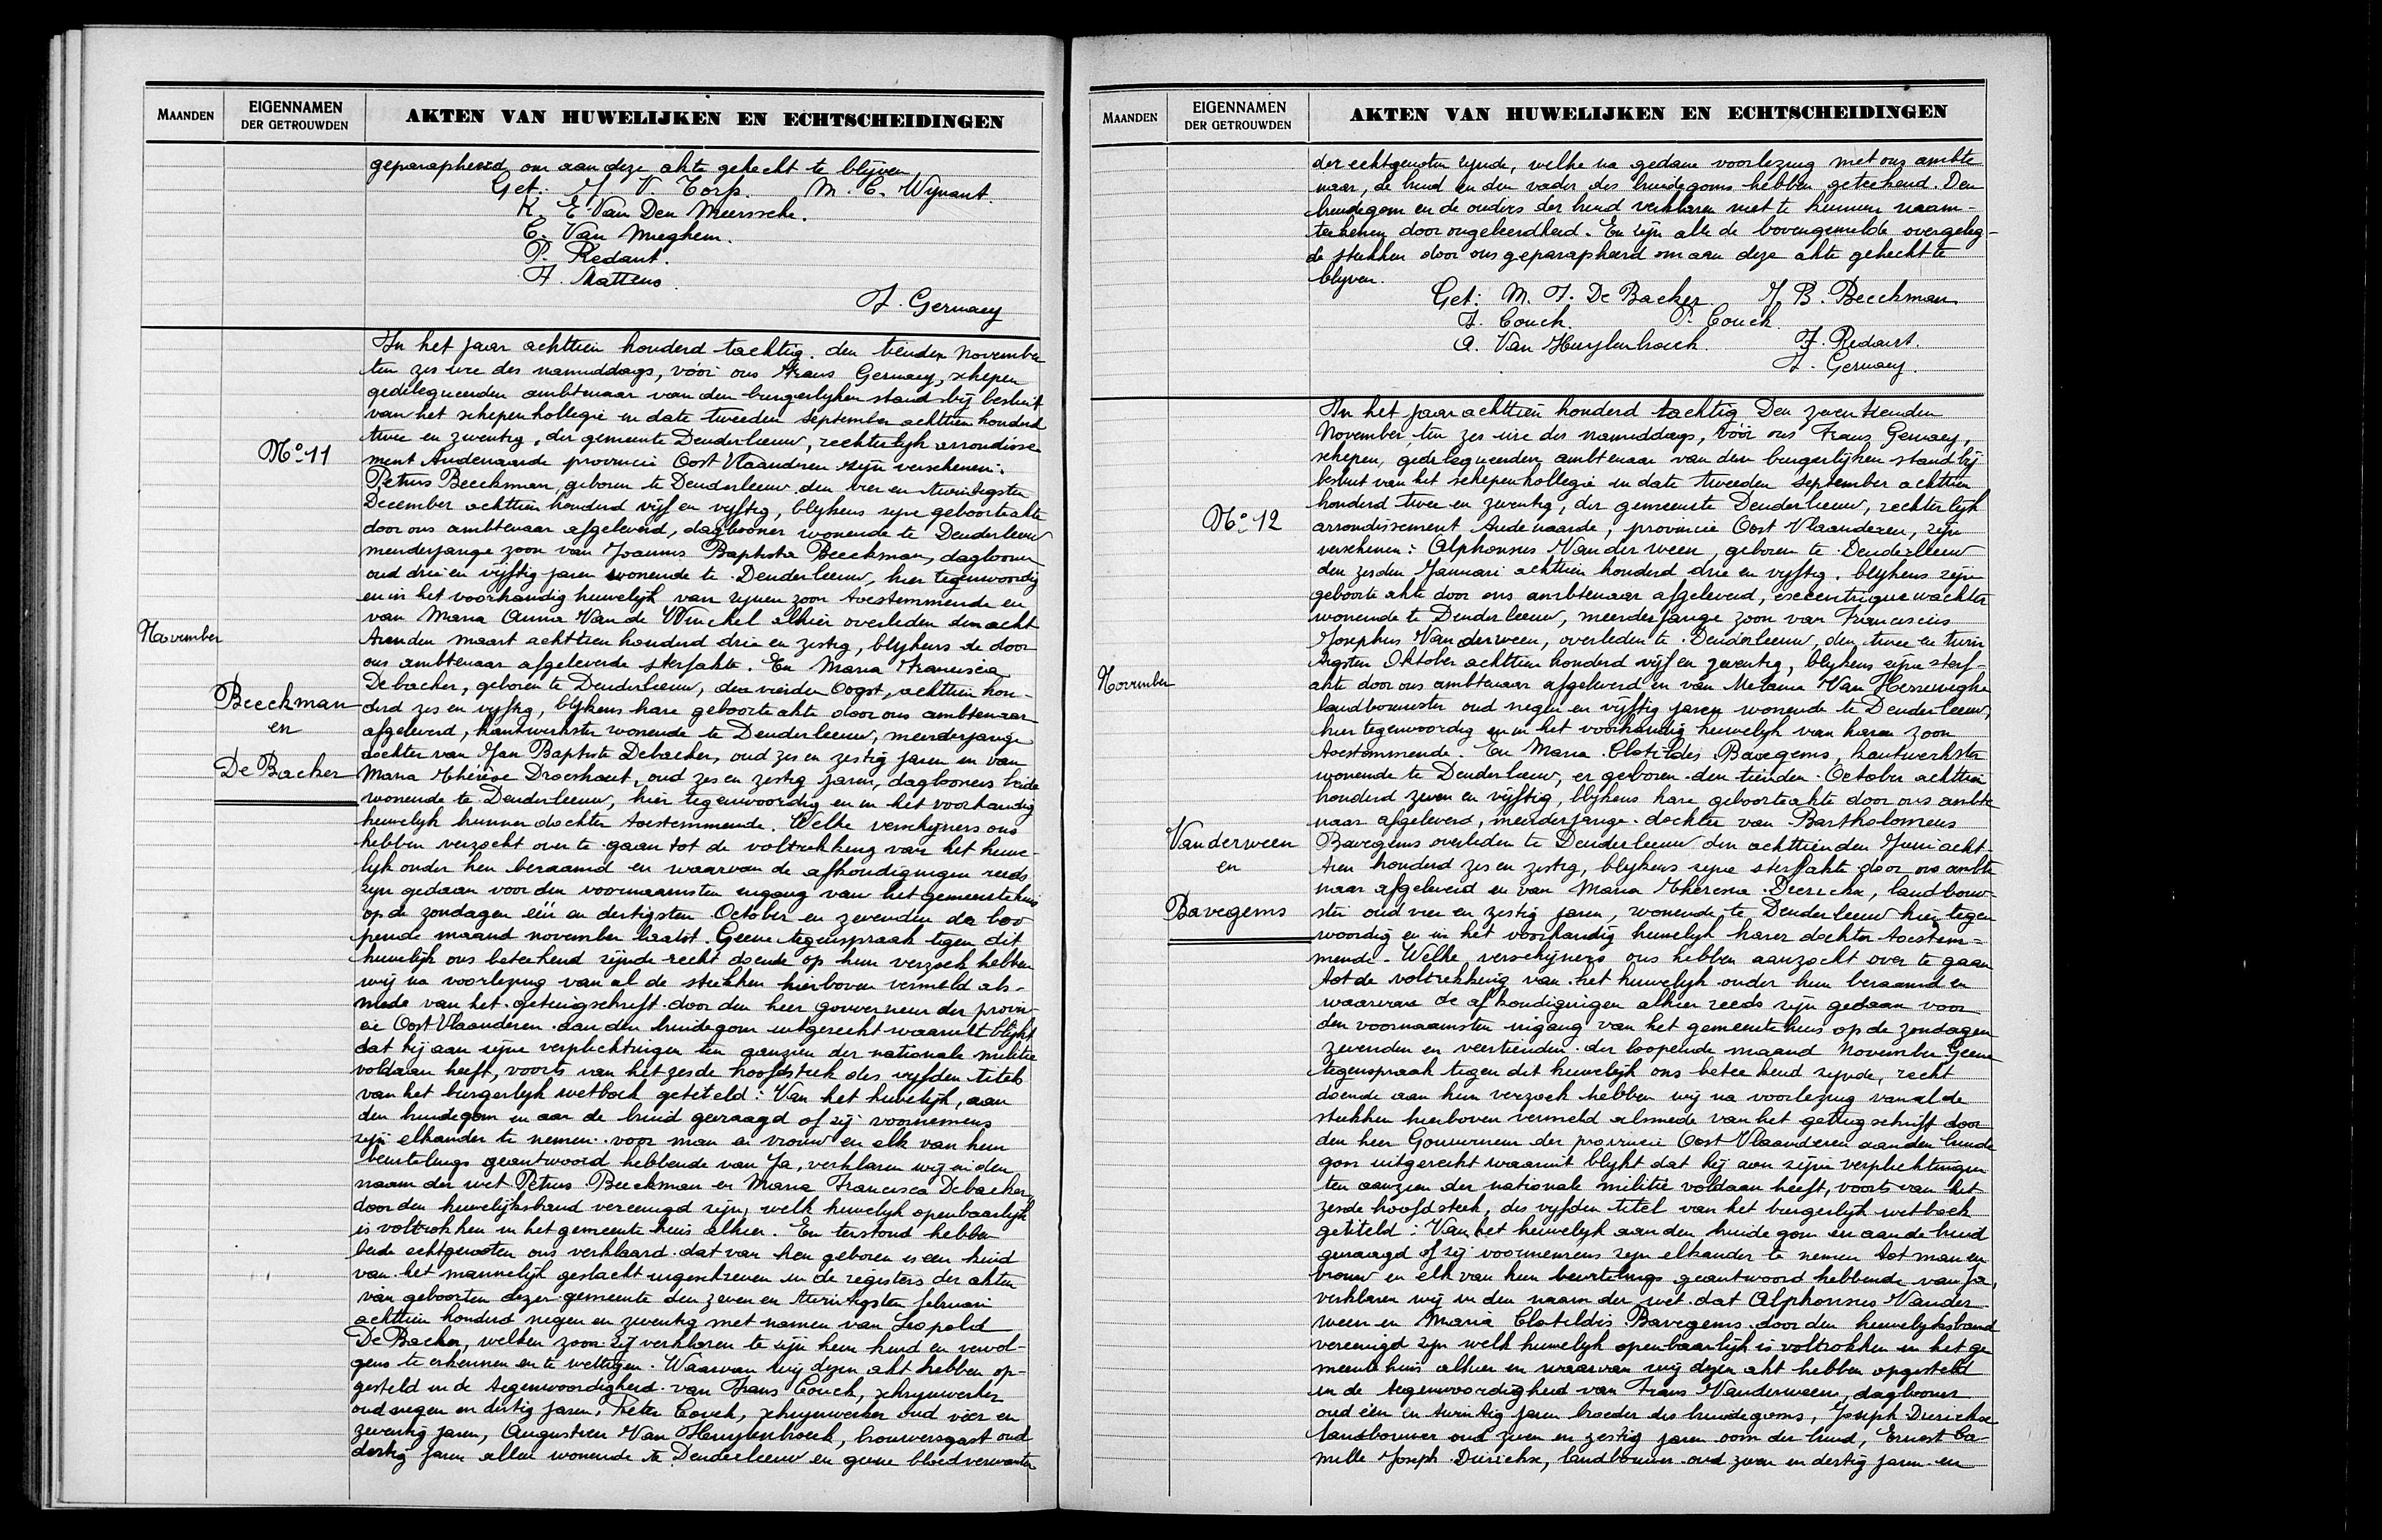 MAANDEN
EIGENNAMEN
DER GETROUWDEN
AKTEN VAN HUWELIJKEN EN ECHTSCHEIDINGEN
geparapheerd om aan deze akte gehecht te blijven
Get. J. V. Torp. M. C. Wynant.
K. E. Van Den Meerssche.
C. Van Mieghem.
P. Redant.
F. Mattens.
F. Germaey
Nº 11
November
Beeckman
en
De Backer
In het jaar achttien honderd tachtig. den tienden November
ten zes ure des namiddags, vóór ons Frans Germaey, schepen
gedelegueerden ambtenaar van den burgerlijken stand bij besluit
van het schepenkollegie in date tweeden September achttien honderd
twee en zeventig, der gemeente Denderleeuw, rechterlijk arrondisse
ment Audenaarde provincie Oost Vlaanderen zijn verschenen:
Petrus Beeckman, geboren te Denderleeuw den vier en twintigsten
December achttien honderd vijf en vijftig, blijkens zijne geboorteakte
door ons ambtenaar afgeleverd, daglooner wonende te Denderleeuw
meerderjarige zoon van Joannes Baptista Beeckman, daglooner
oud drie en vijftig jaren wonende te Denderleeuw, hier tegenwoordig
en in het voorhandig huwelijk van zijnen zoon toestemmende en
van Maria Anna Van de Winckel alhier overleden den acht
tienden maart achttien honderd drie en zestig, blijkens de door
ons ambtenaar afgeleverde sterfakte. En Maria Francisca
Debacker, geboren te Denderleeuw, den vierden Oogst, achttien hon-
derd zes en vijftig, blijkens hare geboorte akte door ons ambtenaar
afgeleverd, kantwerkster wonende te Denderleeuw, meerderjarige
dochter van Jan Baptiste Debacker, oud zes en zestig jaren en van
Maria Thérèse Droeshaut, oud zes en zestig jaren, daglooners beide
wonende te Denderleeuw, hier tegenwoordig en in het voorhandig
huwelijk hunner dochter toestemmende. Welke verschijners ons
hebben verzocht over te gaan tot de voltrekking van het huwe-
lijk onder hen beraamd en waarvan de afkondigingen reeds
zijn gedaan voor den voornaamsten ingang van het gemeentehuis
op de zondagen één en dertigsten October en zevenden der loo
pende maand november laatst. Geene tegenspraak tegen dit
huwelijk ons beteekend zijnde recht doende op hun verzoek hebben
wij na voorlezing van al de stukken hierboven vermeld als-
mede van het getuigschrift door den heer gouverneur der provin-
cie Oost Vlaanderen aan den bruidegom uitgereikt waaruit blijkt
dat hij aan zijne verplichtingen ten aanzien der nationale militie
voldaan heeft, voorts van het zesde hoofdstuk des vijfden titels
van het burgerlijk wetboek getiteld: Van het huwelijk, aan
den bruidegom en aan de bruid gevraagd of zij voornemens
zijn elkander te nemen voor man en vrouw en elk van hun
beurtelings geantwoord hebbende van Ja, verklaren wij in den
naam der wet Petrus Beeckman en Maria Francisca Debacker
door den huwelijksband vereenigd zijn, welk huwelijk openbaarlijk
is voltrokken in het gemeente huis alhier. En terstond hebben
beide echtgenoten ons verklaard dat van hen geboren is een kind
van het mannelijk geslacht ingeschreven in de registers der akten
van geboorten dezer gemeente den zeven en twintigsten februari
achttien honderd negen en zeventig met namen van Leopold
De Backer, welken zoon zij verklaren te zijn hun kind en vervol-
gens te erkennen en te wettigen. Waarvan wij dezen akt hebben op-
gesteld in de tegenwoordigheid van Frans Couck, schrijnwerker
oud negen en dertig jaren, Peter Couck, schrijnwerker oud vier en
zeventig jaren, Augustien Van Huylenbroeck, brouwersgast oud
dertig jaren allen wonende te Denderleeuw en geene bloedverwanten
MAANDEN
EIGENNAMEN
DER GETROUWDEN
AKTEN VAN HUWELIJKEN EN ECHTSCHEIDINGEN
der echtgenoten zijnde, welke na gedane voorlezing met ons ambte
naar, de bruid en den vader des bruidegoms hebben geteekend. Den
bruidegom en de ouders der bruid verklaren niet te kunnen naam-
teekenen door ongeleerdheid. En zijn alle de bovengemelde overgeleg-
de stukken door ons geparapheerd om aan deze akte gehecht te
blijven.
Get: M. F. De Backer. J. B. Beeckman
F. Couck. P. Couck.
A. Van Huylenbroeck. F. Redant.
F. Germaey.
Nº 12
November
Vanderween
en
Bavegems
In het jaar achttien honderd tachtig Den zeventienden
November, ten zes ure des namiddags, vóór ons Frans Germaey,
schepen, gedelegueerden ambtenaar van den burgerlijken stand bij
besluit van het schepenkollegie in date tweeden September achttien
honderd twee en zeventig, der gemeente Denderleeuw, rechterlijk
arrondissement Audenaarde, provincie Oost Vlaanderen, zijn
verschenen: Alphonsus Vanderween, geboren te Denderleeuw
den zesden Januari achttien honderd drie en vijftig, blijkens zijne
geboorte akte door ons ambtenaar afgeleverd, excentriquewachter
wonende te Denderleeuw, meerderjarige zoon van Franciscus
Josephus Vanderween, overleden te Denderleeuw, den twee en twin
tigsten Oktober achttien honderd vijf en zeventig, blijkens zijne sterf-
akte door ons ambtenaar afgeleverd en van Melania Van Herreweghe
landbouwster oud negen en vijftig jaren wonende te Denderleeuw,
hier tegenwoordig en in het voorhandig huwelijk van haren zoon
toestemmende. En Maria Clotildis Bavegems, kantwerkster
wonende te Denderleeuw, er geboren den tienden October achttien
honderd zeven en vijftig, blijkens hare geboorteakte door ons ambte
naar afgeleverd, meerderjarige dochter van Bartholomeus
Bavegems overleden te Denderleeuw den achttienden Juni acht-
tien honderd zes en zestig, blijkens zijne sterfakte door ons ambte
naar afgeleverd en van Maria Theresia Dierickx, landbouw-
ster oud vier en zestig jaren, wonende te Denderleeuw hier tegen
woordig en in het voorhandig huwelijk harer dochter toestem-
mende. Welke verschijners ons hebben aanzocht over te gaan
tot de voltrekking van het huwelijk onder hun beraamd en
waarvan de afkondigingen alhier reeds zijn gedaan voor
den voornaamsten ingang van het gemeentehuis op de zondagen
zevenden en veertienden der loopende maand November Geene
tegenspraak tegen dit huwelijk ons beteekend zijnde, recht
doende aan hun verzoek hebben wij na voorlezing van al de
stukken hierboven vermeld alsmede van het getuigschrift door
den heer Gouverneur der provincie Oost Vlaanderen aan den bruide
gom uitgereikt waaruit blijkt dat hij aan zijne verplichtingen
ten aanzien der nationale militie voldaan heeft, voorts van het
zesde hoofdstuk, des vijfden titel van het burgerlijk wetboek
getiteld: Van het huwelijk aan den bruidegom en aan de bruid
gevraagd of zij voornemens zijn elkander te nemen tot man en
vrouw en elk van hun beurtelings geantwoord hebbende van Ja,
verklaren wij in den naam der wet dat Alphonsus Vander-
ween en Maria Clotildis Bavegems door den huwelijksband
vereenigd zijn welk huwelijk openbaarlijk is voltrokken in het ge
meente huis alhier en waarvan wij dezen akt hebben opgesteld
in de tegenwoordigheid van Frans Vanderween, daglooner
oud één en twintig jaren broeder des bruidegoms, Joseph Dierickx
landbouwer oud zeven en zestig jaren oom der bruid, Ernest Ca-
mille Joseph Dierickx, landbouwer oud zeven en dertig jaren en